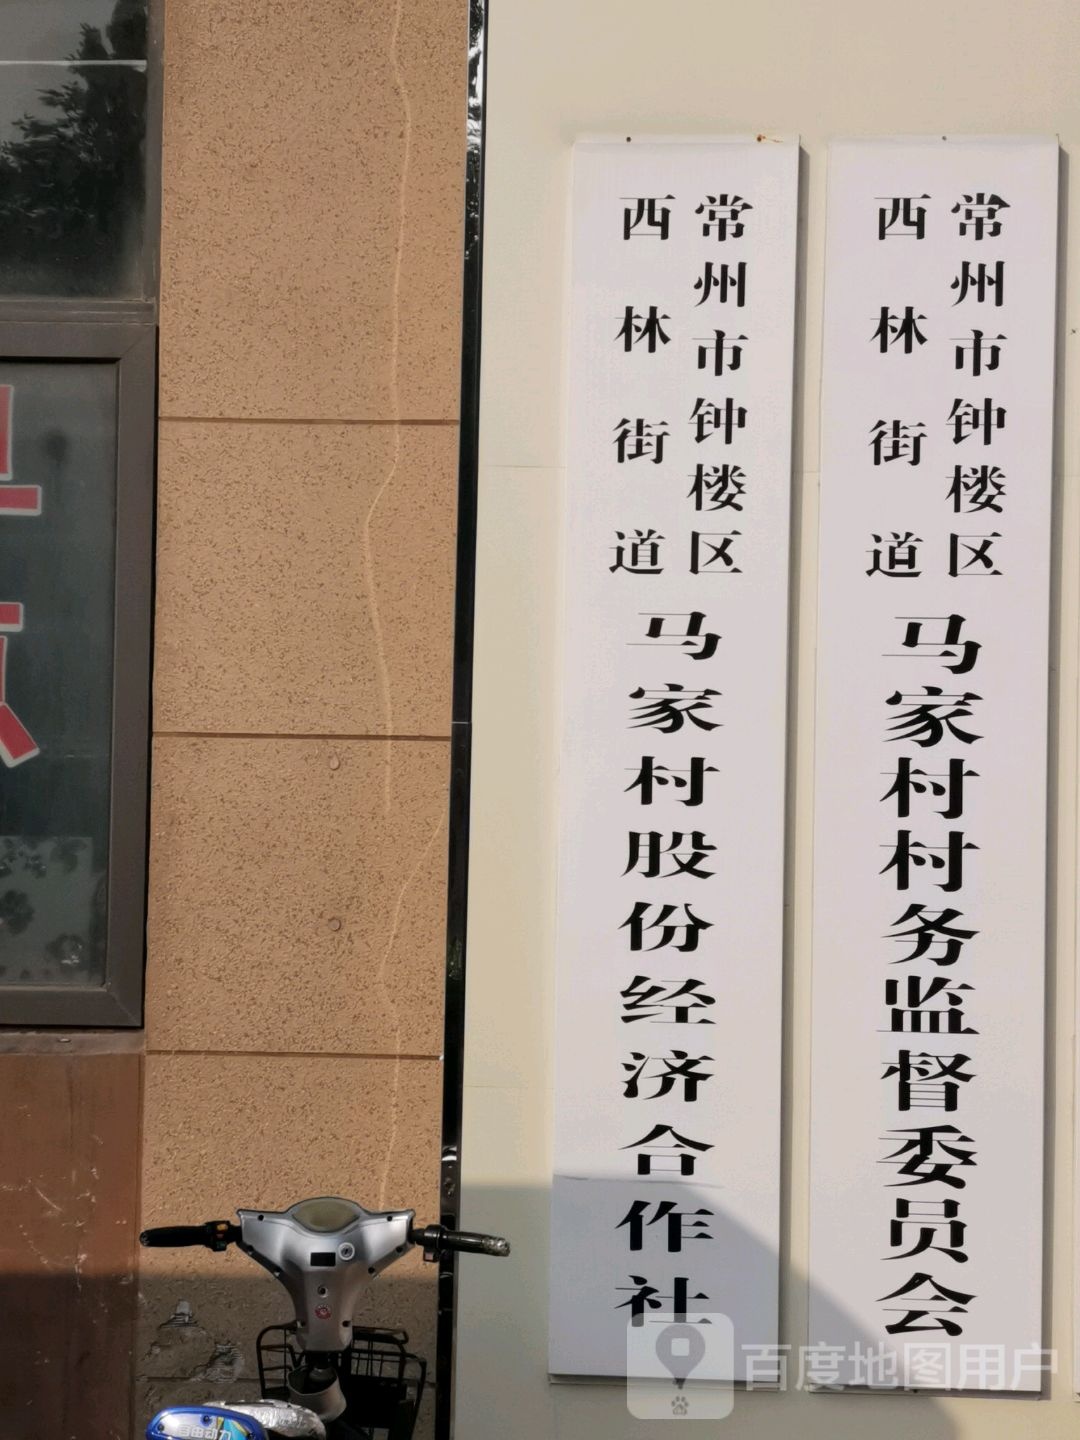 常州市钟楼区
西林街道
马家村村务监督委员会
常州市钟楼区
西林街道
马家村股份经济合作社
自由动力
百度地图用户